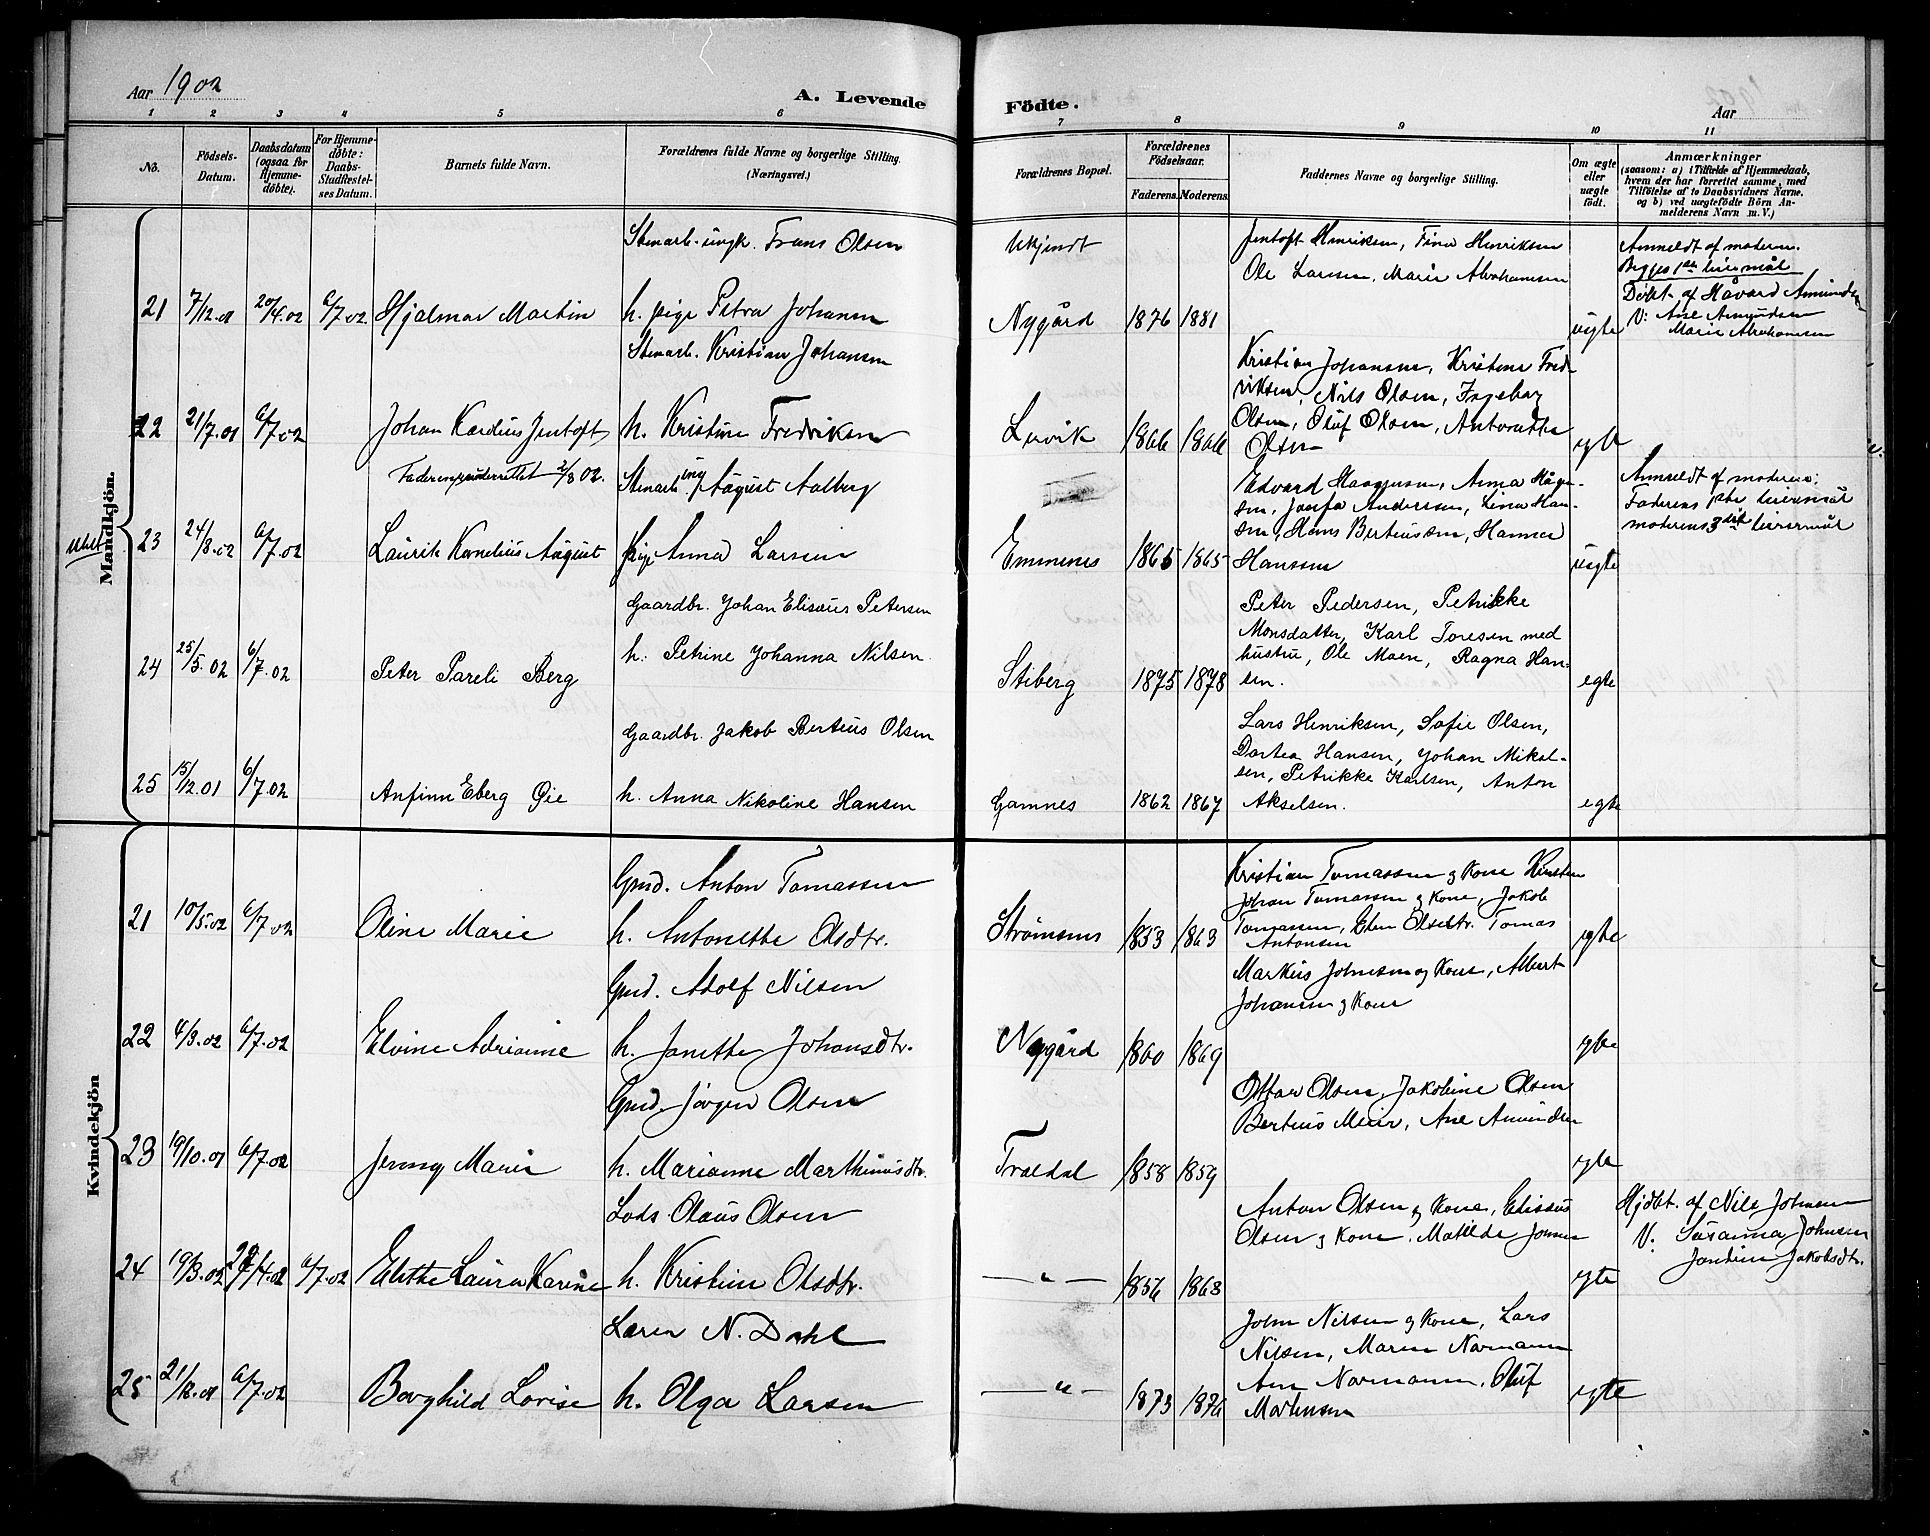 Aar 1902
A. Levende Födte.
Aar
1 2 3 4 5 6 7 8 9 10 11
No.
Födsels-Datum.
Daabsdatum (ogsaa for Hjemme-döbte).
For Hjemme-döbte: Daabs-Stadfestel-ses Datum.
Barnets fulde Navn.
Forældrenes fulde Navne og borgerlige Stilling. (Næringsvei.)
Forældrenes Bopæl.
Forældrenes Födselsaar.
Faderens. Moderens.
Faddernes Navne og borgerlige Stilling.
Om ægte eller uægte födt.
Anmærkninger
(saasom: a) i Tilfælde af Hjemmedaab,
hvem der har forrettet samme, med
Tilföielse af to Daabsvidners Navne.
og b) ved uægtefödte Börn An-
melderens Navn m. V.)
Mandkjön.
Stenarb. ungk. Frans Olsen
21 7/12.01 20/4.02 6/7.02 Hjalmar Martin h. pige Petra Johansen
Ukjendt
Nygård 1876 1881
Jentoft Henriksen, Fina Henriksen
Ole Larsen, Marie Abrahamsen
uegte
Anmeldt af moderen.
Begges 1ste leiermål
Döbt af Håvard Amundsen
V: Ane Amundsen
Marie Abrahamsen
Stenarb. Kristian Johansen
22 21/7.01 6/7.02 Johan Kardius Jentoft h. Kristine Fredriksen
Lervik 1866 1866
Kristian Johansen, Kristene Fred-
riksen, Nils Olsen, Ingebor
Olsen, Oluf Olsen, Antonette
Olsen
egte
Faderen underrettet 2/8 02.
Stenarb. ung August Aalberg
23 24/8.02 6/7.02 Laurits Kornelius August pige Anna Larsen
Emmenes 1865 1865
Edvard Haagensen, Anna Håge-
sen, Josefa Andersen, Lina Han-
sen, Hans Berteussen, Hanna
Hanssen
uegte
Anmeldt af moderen.
Faderens 1ste leiermål
moderens 3die leiermål
Gaardbr. Johan Elisæus Petersen
24 25/5.02 6/7.02 Peter Pareli Berg h. Petrine Johanna Nilsen
Stiberg 1875 1878
Peter Pedersen, Petrikke
Monsdatter, Karl Toresen med
hustru, Ole Moen, Ragna Han-
sen.
egte
Gaardbr. Jakob Berteus Olsen
25 15/12.01 6/7.02 Anfinn Eberg Öie h. Anna Nikoline Hansen
Gamnes 1862 1867
Lars Henriksen, Sofie Olsen,
Dortea Hansen, Johan Mikal-
sen, Petrikke Karlsen, Anton
Akselsen.
egte
Kvindekjön
Gmd. Anton Tomassen
21 10/5.02 6/7.02 Oline Marie h. Antonette Olsdtr.
Strömsnes 1853 1863
Kristian Tomassen og Kone Kirsten
Johan Tomassen og Kone, Jakob
Tomassen, Elen Olsdtr. Tomas
Antonsen
egte
Gmd. Adolf Nilsen
22 4/3.02 6/7.02 Elvine Adrianne h. Janette Johansdtr.
Nygård 1860 1869
Markus Johnsen og Kone, Albert
Johansen og Kone
egte
Gmd. Jörgen Olsen
23 19/10.01 6/7.02 Jenny Marie h. Marianne Marthinusdtr.
Traldal 1858 1859
Ottar Olsen, Jakobine Olsen
Berteus Meier, Ane Amundsen
egte
Lods Olaus Olsen
24 19/3.02 29/4.02 6/7.02 Elethe Laura Karine h. Kristine Olsdtr.
— „ — 1856 1863
Anton Olsen og Kone, Elisæus
Olsen og Kone. Matilde Jonsen
egte
Hjdöbt. af Nils Johnsen
V: Susanna Johnsen
Jentine Jakobsdtr.
Lærer N. Dahl
25 21/12.01 6/7.02 Borghild Lovise h. Olga Larsen
— „ — 1873 1876
John Nilsen og Kone, Lars
Nilsen, Maren Normann
Ane Normann, Oluf
Mortensen
egte